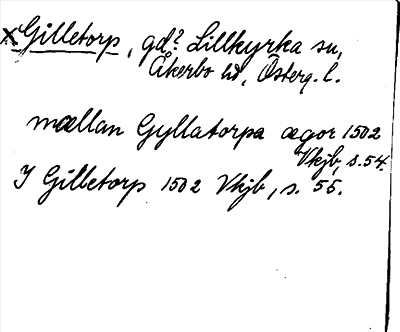 ×Gilletorp, gd? Lillkyrka sn,
Åkerbo hd, Österg. l.
mællan Gyllatorpa ægor 1502
Vkjb, s. 54.
I Gilletorp 1502 Vkjb, s. 55.